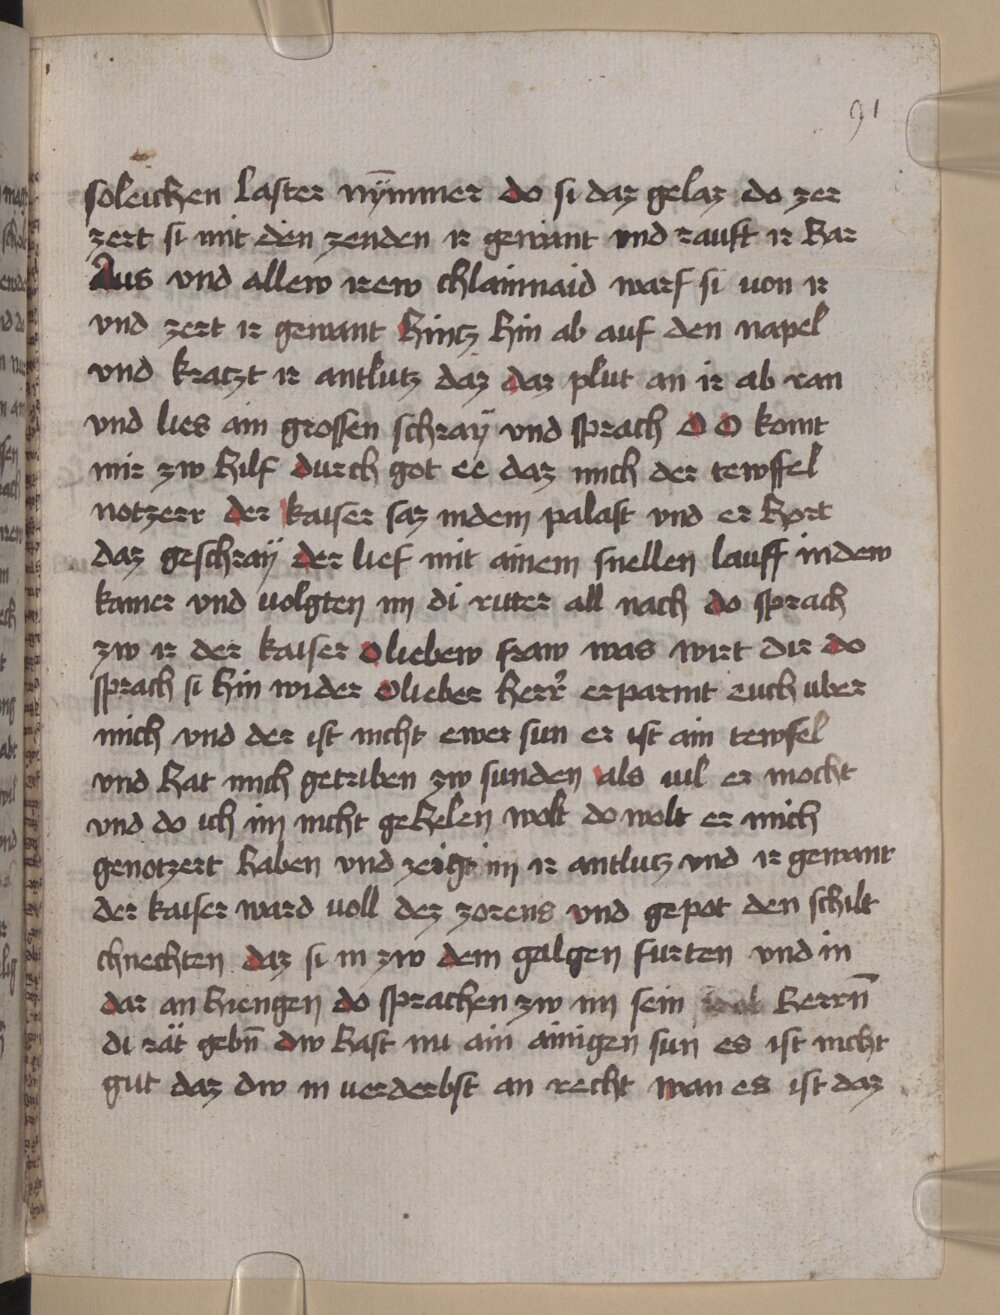 91
soleichen laster nÿmmer do si daz gelaz do zer
zert si mit den zenden ir gewant vnd rauft ir har
Aus vnd allew irew chlainnaid warf si von ir
vnd zert ir gewant hincz hin ab auf den napel
vnd kraczt ir antlutz daz daz plut an ir ab ran
vnd lies ain grossen schraÿ vnd sprach O O komt
mir zw hilf durch got ee daz mich der tewffel
notzerr der kaiser saz indem palast vnd er hort
daz geschraÿ der lief mit ainem snellen lauff indew
kamer vnd uolgten im di ritter all nach do sprach
zw ir der kaiser O liebew fraw was wirt dir do
sprach si hin wider O lieber herr erparmt euch uber
mich vnd der ist nicht ewer sun er ist ain tewfel
vnd hat mich getriben zw sunden als uil er mocht
vnd do ich im nicht gehelen wolt do wolt er mich
genotzert haben vnd zeigt im ir antlutz vnd ir gewant
der kaiser ward voll dez zorens vnd gepot den schilt
chnechten daz si in zw dem galgen furten vnd in
dar an hiengen do sprachen zw im sein herrn̄
di rät gebn̄ dw hast nu ain ainigen sun es ist nicht
gut daz dw in verderbst an recht wan es ist daz